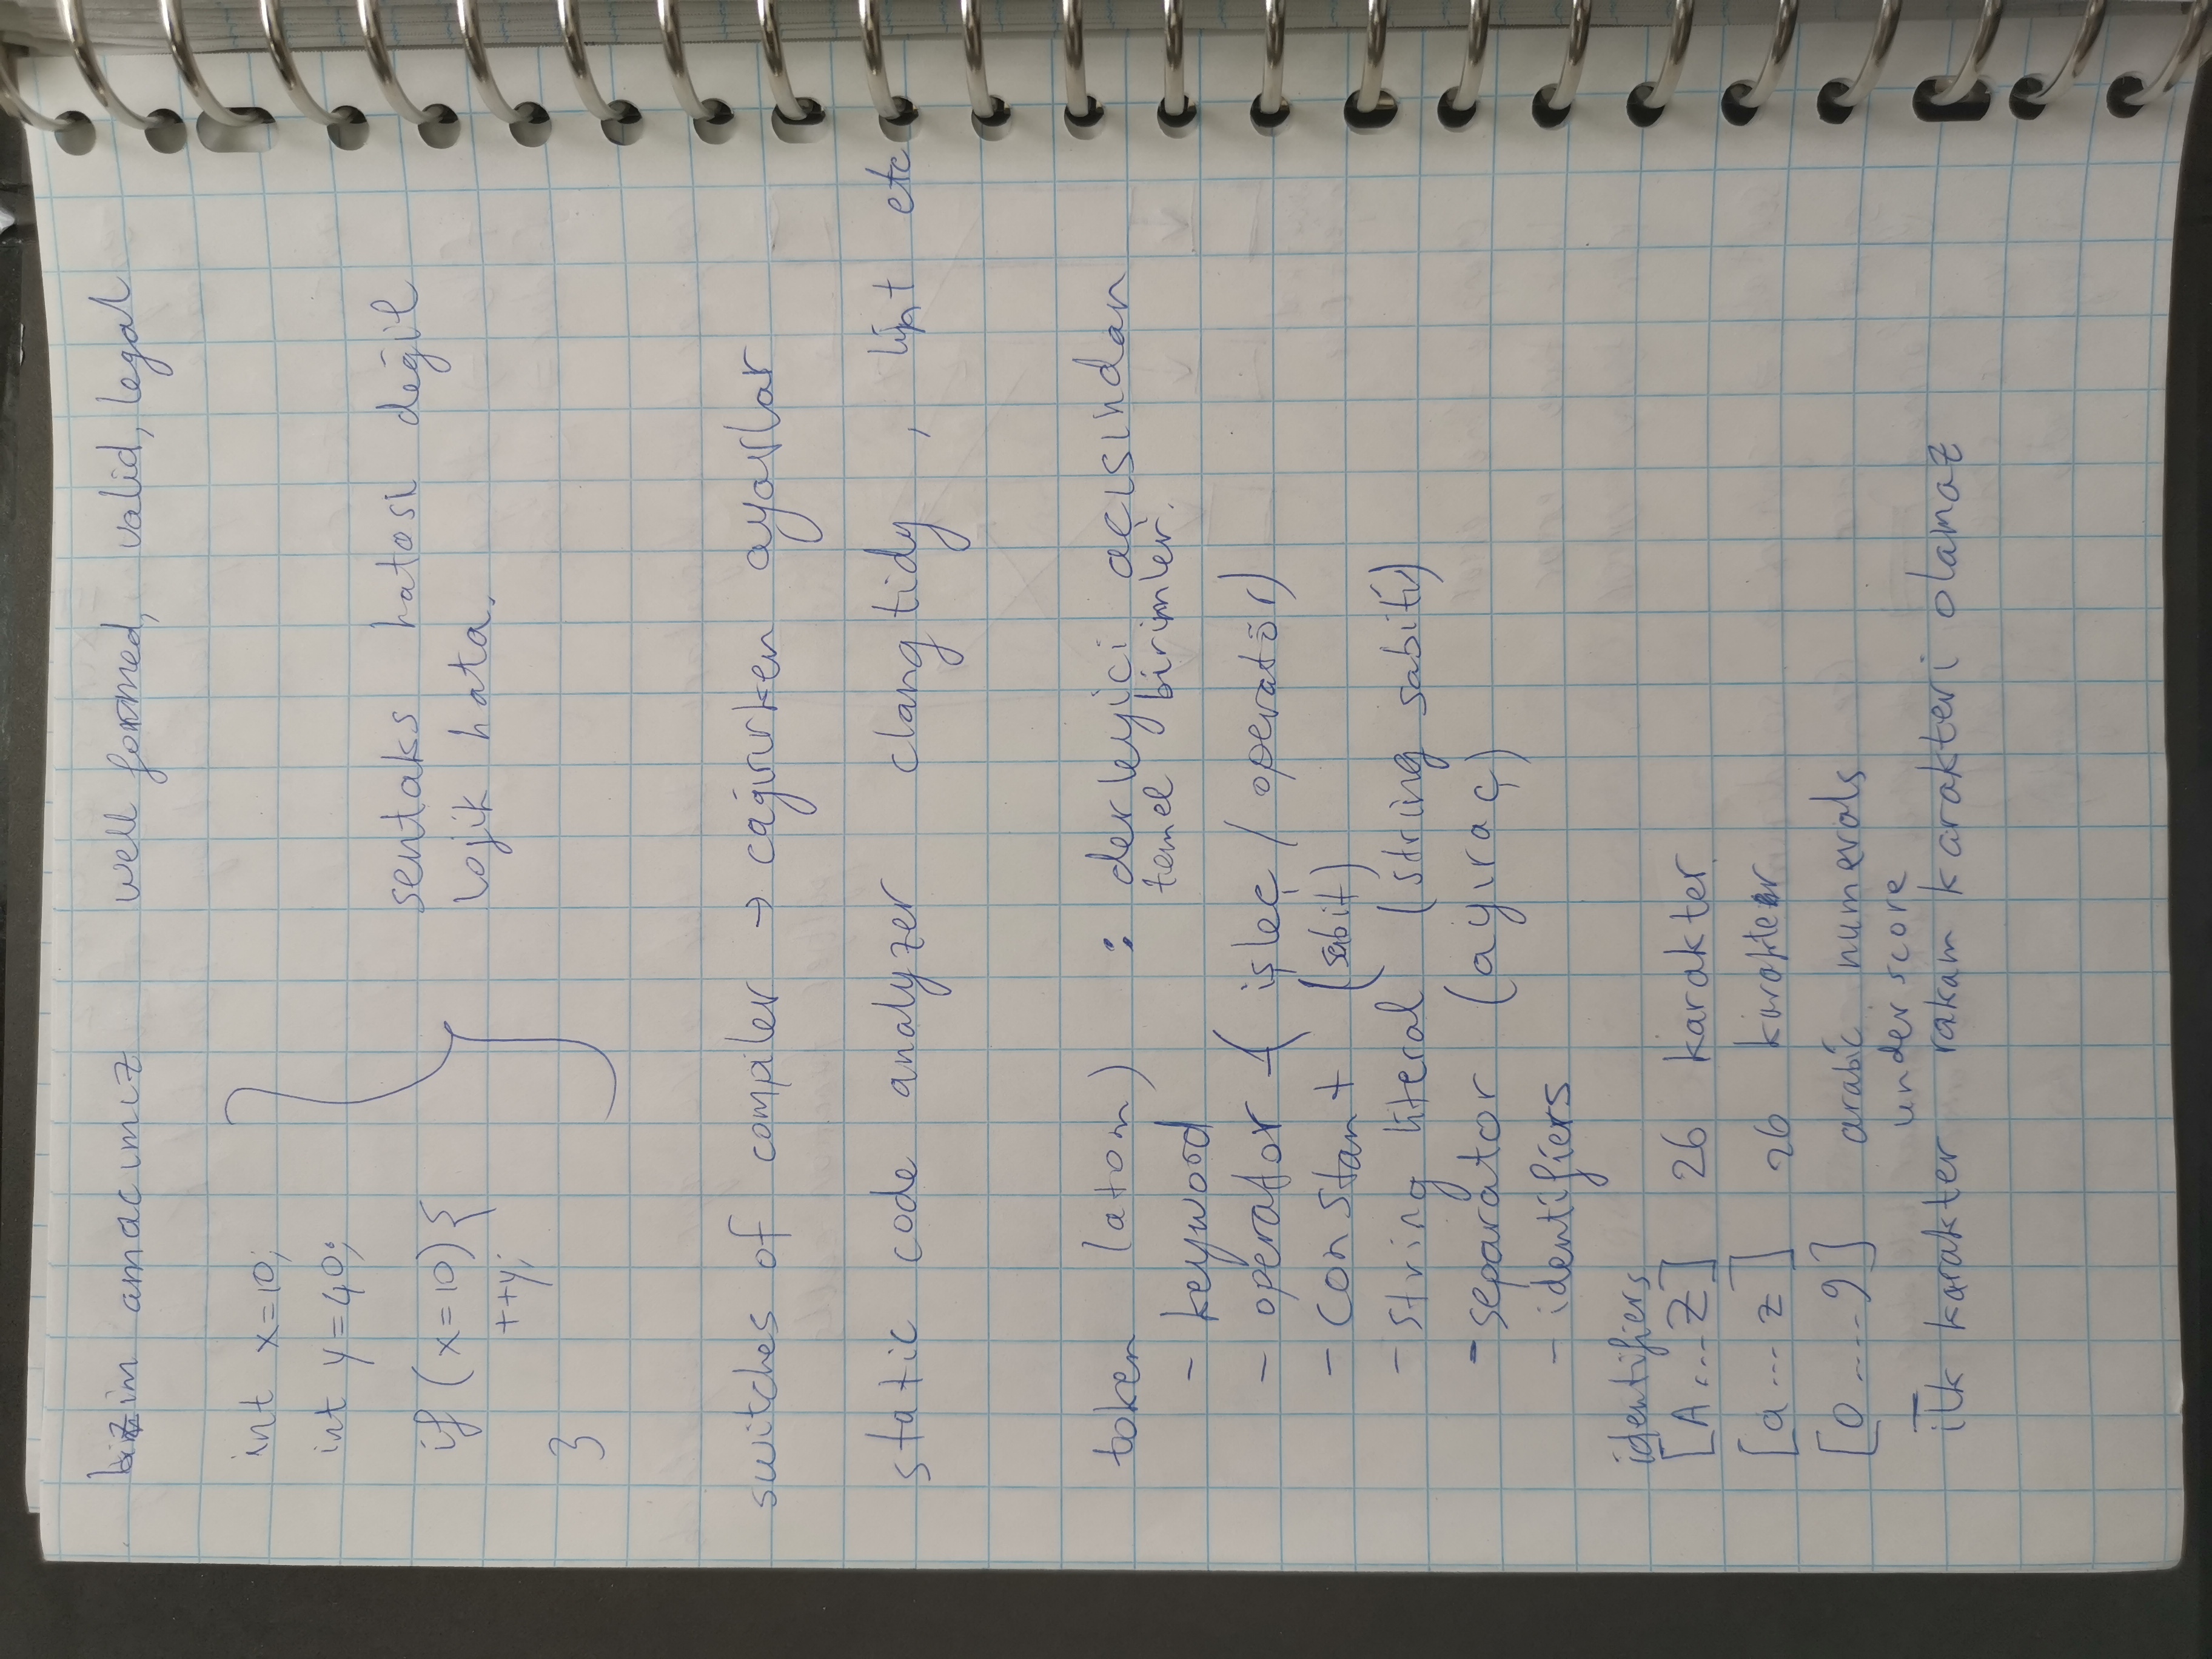 bizim amacımız well formed, valid, legal
int x=10;
int y=40;
if (x=10){
++y;
}
sentaks hatası değil
lojik hata.
switches of compiler → cağırırken ayarlar
static code analyzer clang tidy , lint etc
token (atom) : derleyici açısından
temel birimler.
- keyword
- operator ( işleç / operatör)
- constant (sabit)
- string literal (string sabiti)
- separator (ayıraç)
- identifiers
identifiers
[A...Z] 26 karakter.
[a...z] 26 karakter
[0....9] arabic numerals
_ underscore
ilk karakter rakam karakteri olamaz